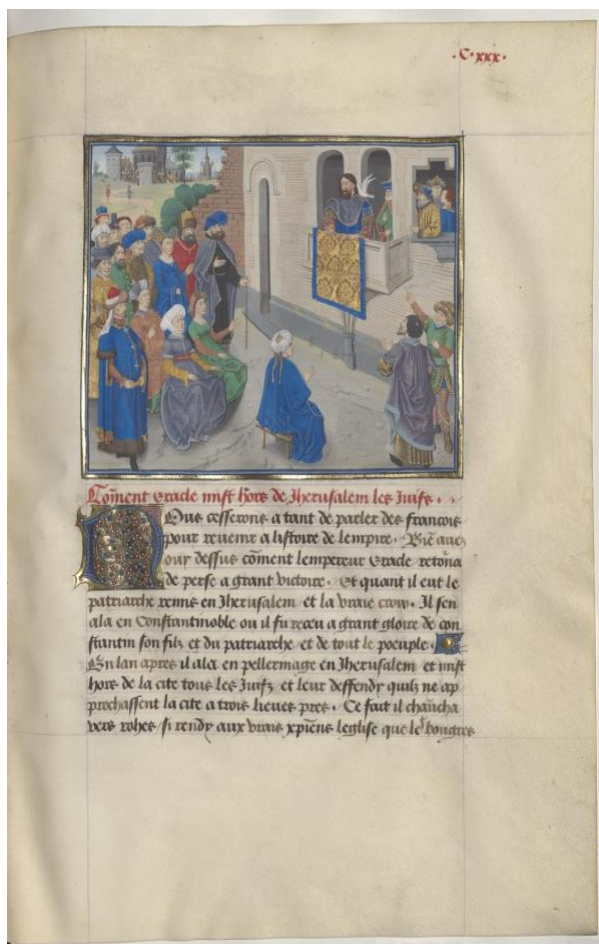 .C.xxx.
Com̄ent eracle mist hors de Jherusalem les Juifs.
Nous cesserons a tant de parler des francois
pour revenir a listoire de lempire. Bie͂ avez
ouy dessus com̄ent lempereur eracle retorna
de perse a grant victoire. Et quant il eut le
patriarche remis en Jherusalem et la vraie croix. Il sen
ala en Constantinoble ou il fu receu a grant gloire de con
stantin son filz et du patriarche et de tout le poeuple.
Un lan apres il ala en pellerinage en Jherusalem et mist
hors de la cite tous les Juifz et leur deffendy quilz ne ap
prochassent la cite a trois lieues pres. Ce fait il chaucha
vers rohes si rendy aux vrais xpiens leglise que les bougres